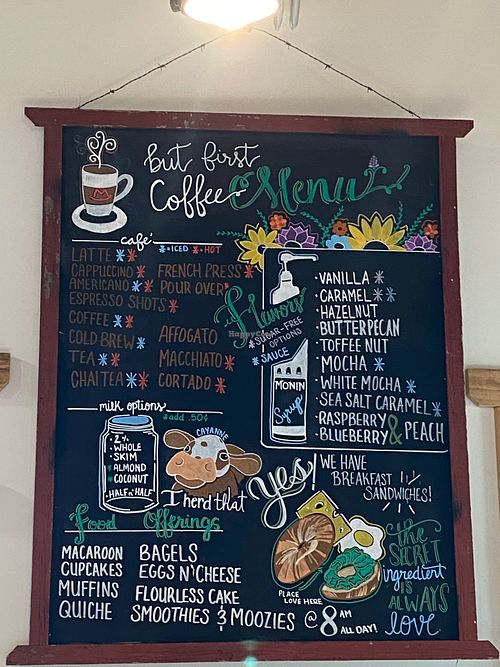 but first
Coffee Menu
café
* = ICED * = HOT
LATTE **
CAPPUCCINO *
AMERICANO **
ESPRESSO SHOTS *
COFFEE **
COLD BREW *
TEA **
CHAI TEA **
FRENCH PRESS *
POUR OVER *
AFFOGATO
MACCHIATO *
CORTADO *
Flavors
* SUGAR-FREE
OPTIONS
* SAUCE
MONIN
Syrup
· VANILLA *
· CARAMEL **
· HAZELNUT
· BUTTERPECAN
· TOFFEE NUT
· MOCHA *
· WHITE MOCHA *
· SEA SALT CARAMEL *
· RASPBERRY
· BLUEBERRY & PEACH
milk options
* add .50¢
· 2%
· WHOLE
· SKIM
* ALMOND
* COCONUT
· HALF n' HALF
CAYANNE
I herd that
yes! WE HAVE
BREAKFAST
SANDWICHES!
Food Offerings
MACAROON
CUPCAKES
MUFFINS
QUICHE
BAGELS
EGGS N' CHEESE
FLOURLESS CAKE
SMOOTHIES & MOOZIES
PLACE
LOVE HERE
@ 8 AM
ALL DAY!
the
SECRET
ingredient
is
ALWAYS
love
HappyCow